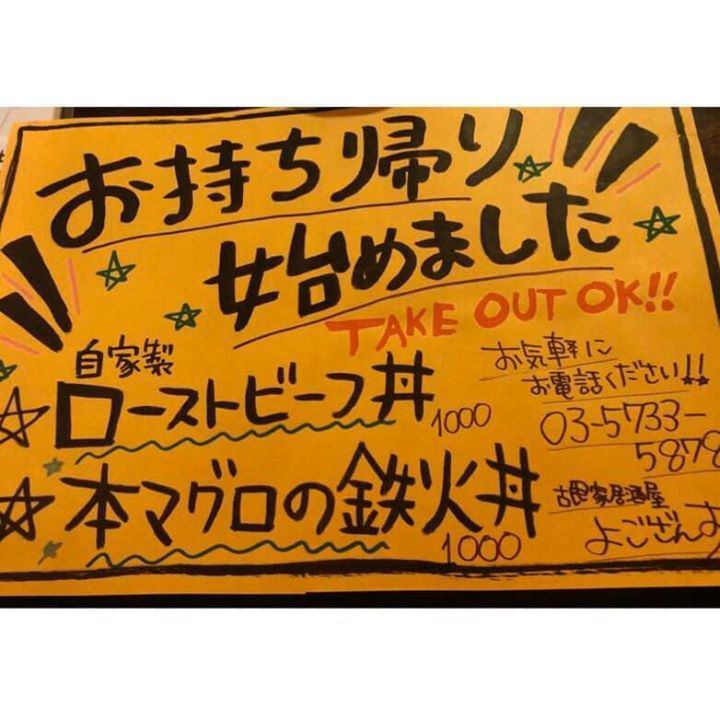 お持ち帰り
始めました
TAKE OUT OK!!
自家製
ローストビーフ丼 1000
本マグロの鉄火丼 1000
お気軽に
お電話ください!!
03-5733-
5878
古民家居酒屋
よござんす